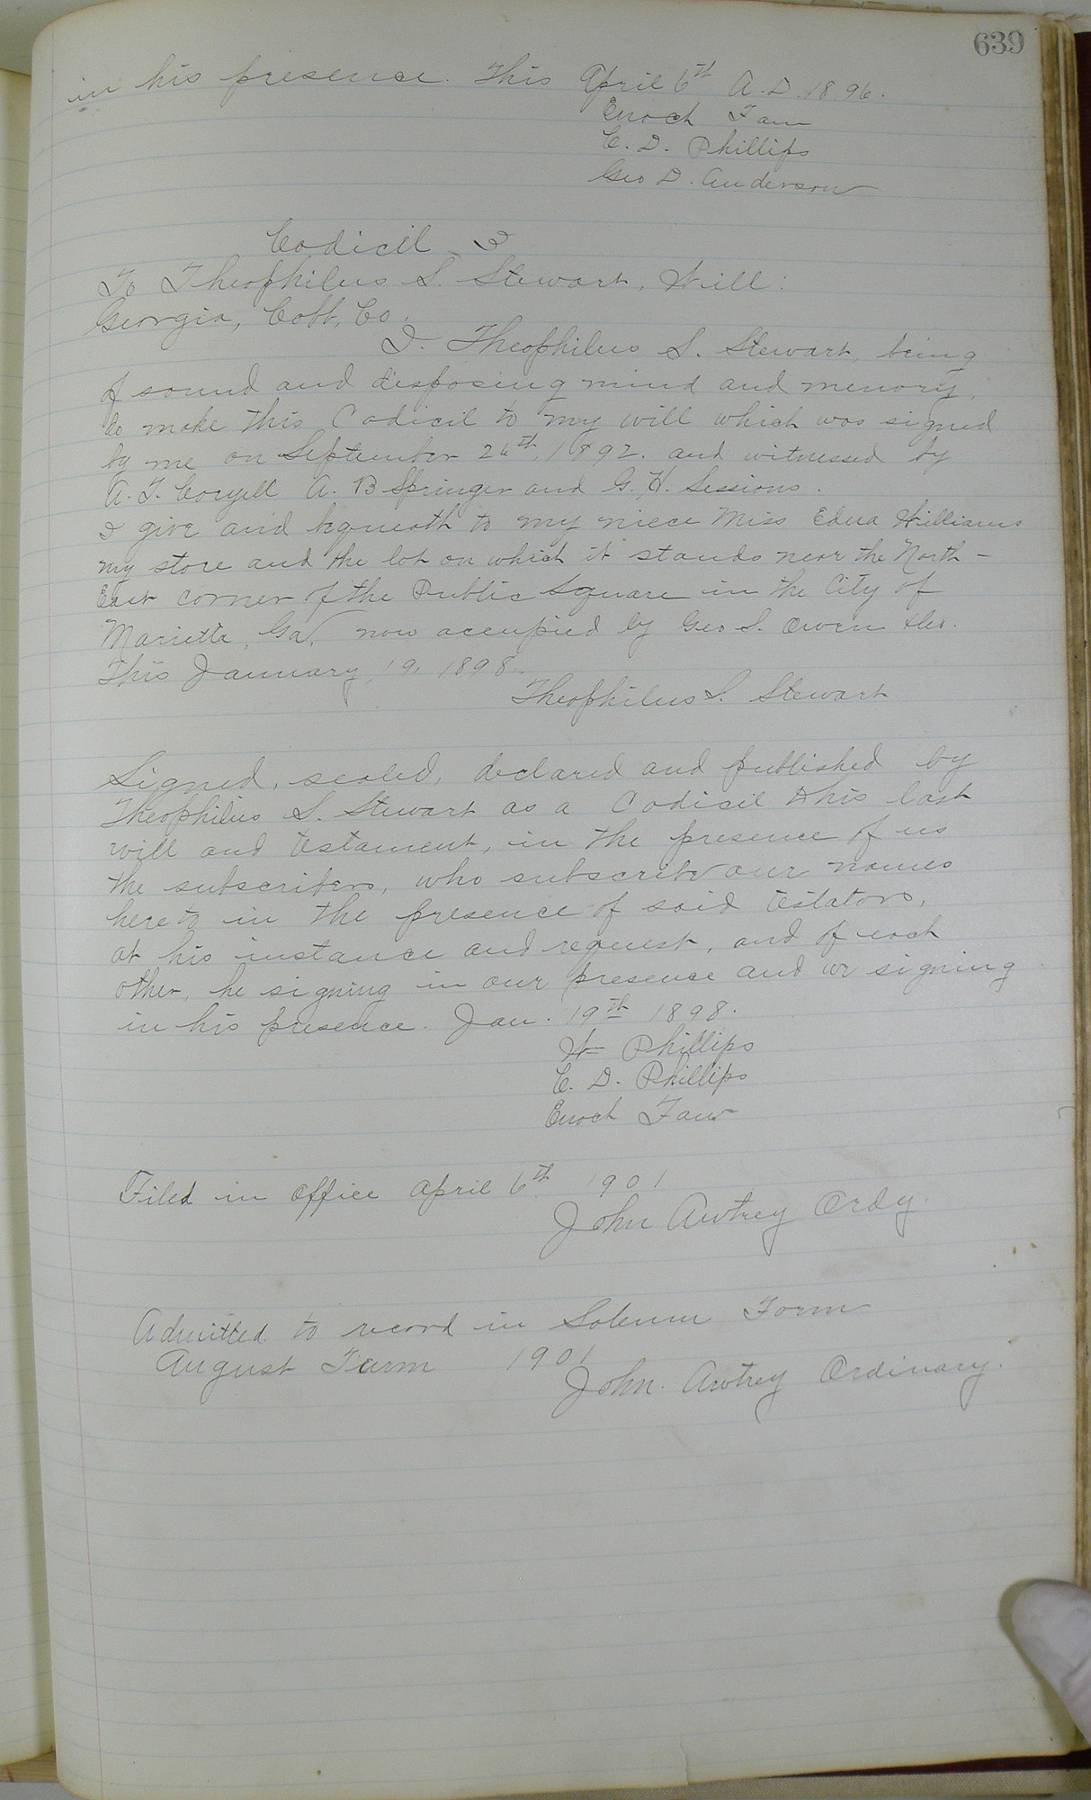 639
in his presence. This April 6th A.D. 1896.
Enoch Faw
C. D. Phillips
Geo D. Anderson
Codicil 3
To Theophilus S. Stewart, Will:
Georgia, Cobb, Co.
I. Theophilus S. Stewart, being
of sound and disposing mind and memory,
do make this Codicil to my will which was signed
by me on September 26th, 1892. and witnessed by
A. T. Coryell A. B Springer and G. H. Sessions.
I give and bequeath to my niece Miss Edna Williams
my store and the lot on which it stands near the North-
East corner of the Public Square in the City of
Marietta, Ga, now occupied by Geo S. Owen
This January, 19, 1898.
Theophilus S. Stewart
Signed, sealed, declared and published by
Theophilus S. Stewart as a Codicil to his last
will and testament, in the presence of us
the subscribers, who subscribe our names
hereto in the presence of said testators,
at his instance and request, and of each
other, he signing in our presence and we signing
in his presence. Jan. 19th 1898.
W Phillips
C. D. Phillips
Enoch Faw
Filed in office April 6th 1901
John Awtrey Ordy.
Admitted to record in Solemn Form
August Turm 1901
John. Awtrey Ordinary.